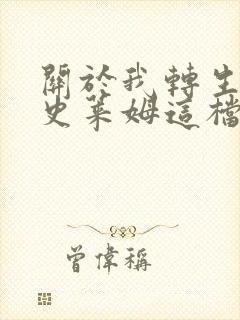 關於我轉生
史萊姆這檔
曾偉稱